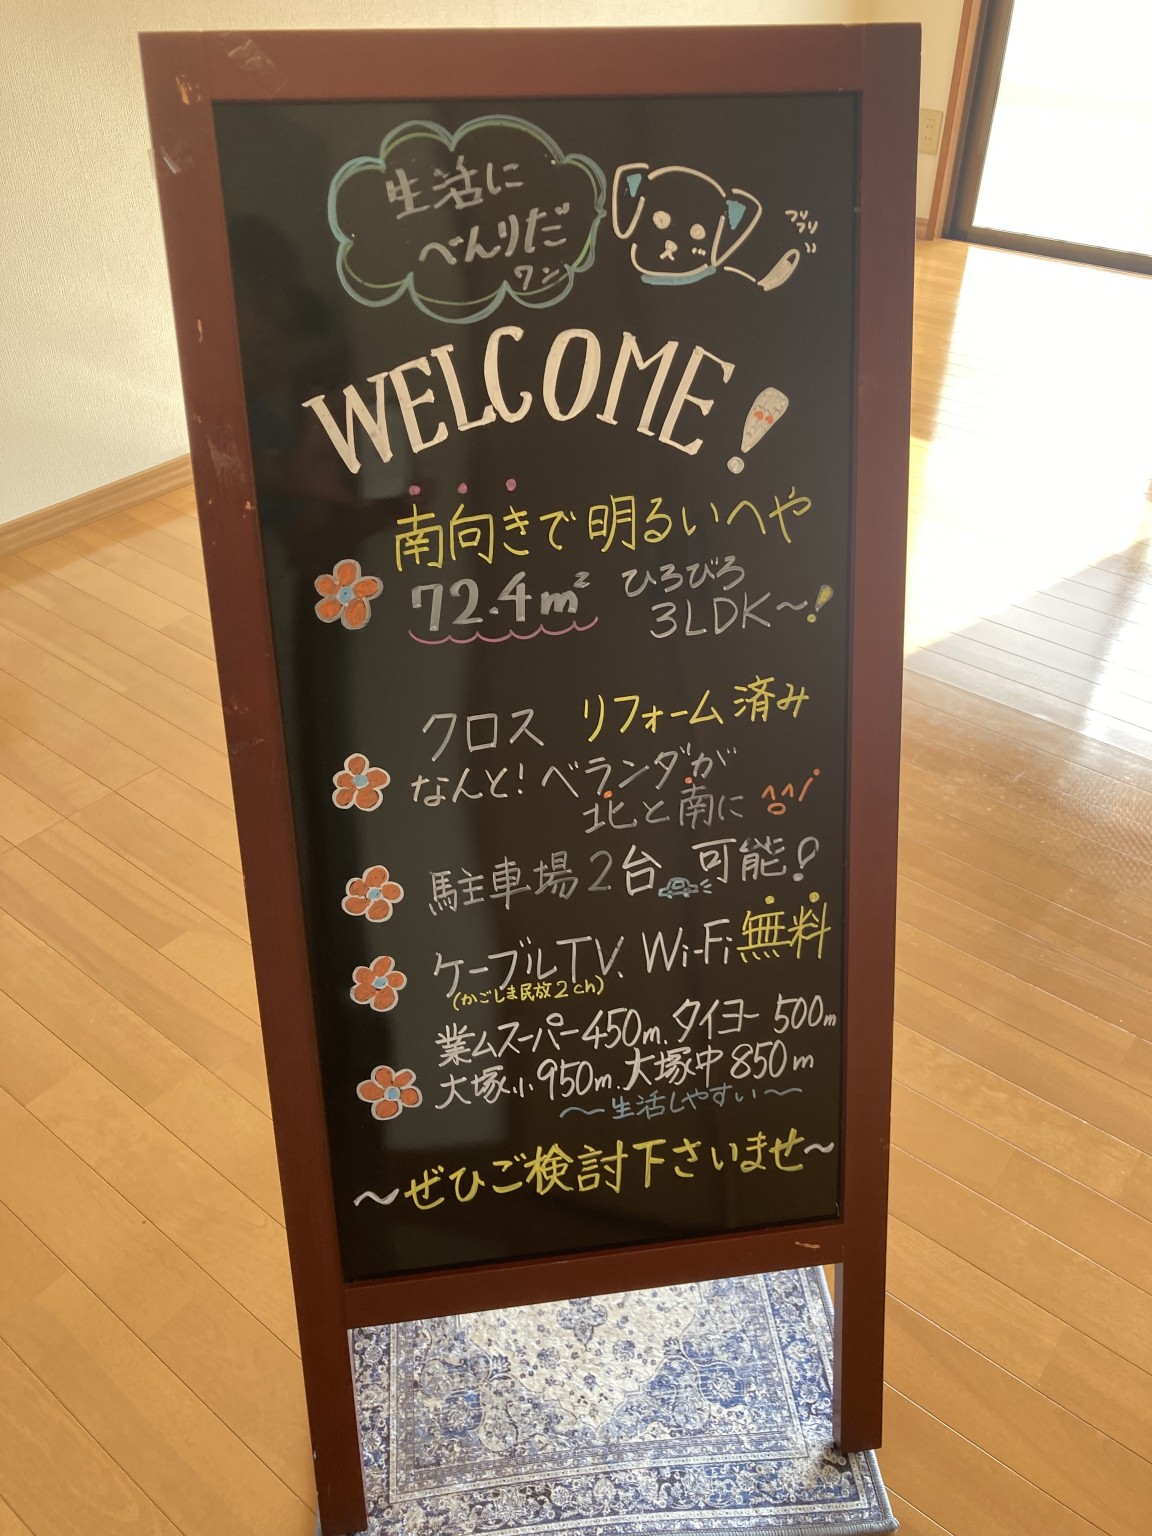 生活に
べんりだ
ワン
フリ
フリ
WELCOME!
南向きで明るいへや
72.4m² ひろびろ
3LDK〜!
クロス リフォーム済み
なんと!ベランダが
北と南に
駐車場2台 可能!
ケーブルTV、Wi-Fi無料
(かごしま民放2ch)
業ムスーパー450m、タイヨー 500m
大塚小950m、大塚中850m
〜生活しやすい〜
〜ぜひご検討下さいませ〜